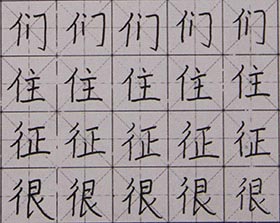 们们们们们
住住住住住
征征征征征
很很很很很